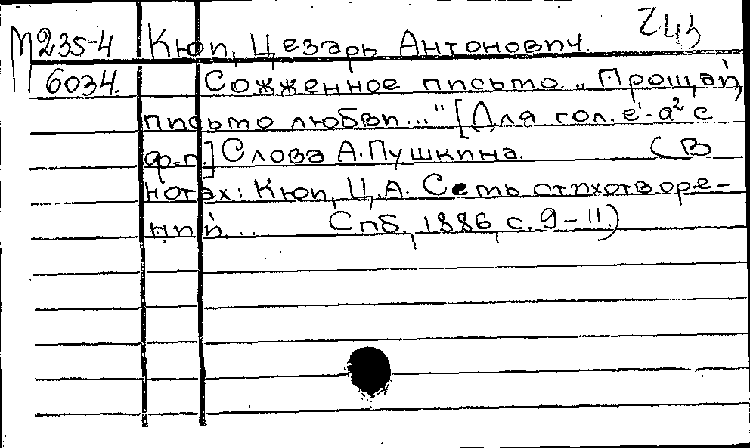 М 235-4 Кюи, Цезарь Антонович.
6034. Сожженное письмо „Прощай,
письмо любви..." [Для гол. е¹-а² с
ф-п.] Слова А. Пушкина. (В
нотах: Кюи, Ц.А. Семь стихотворе-
ний... Спб., 1886, с. 9-11)